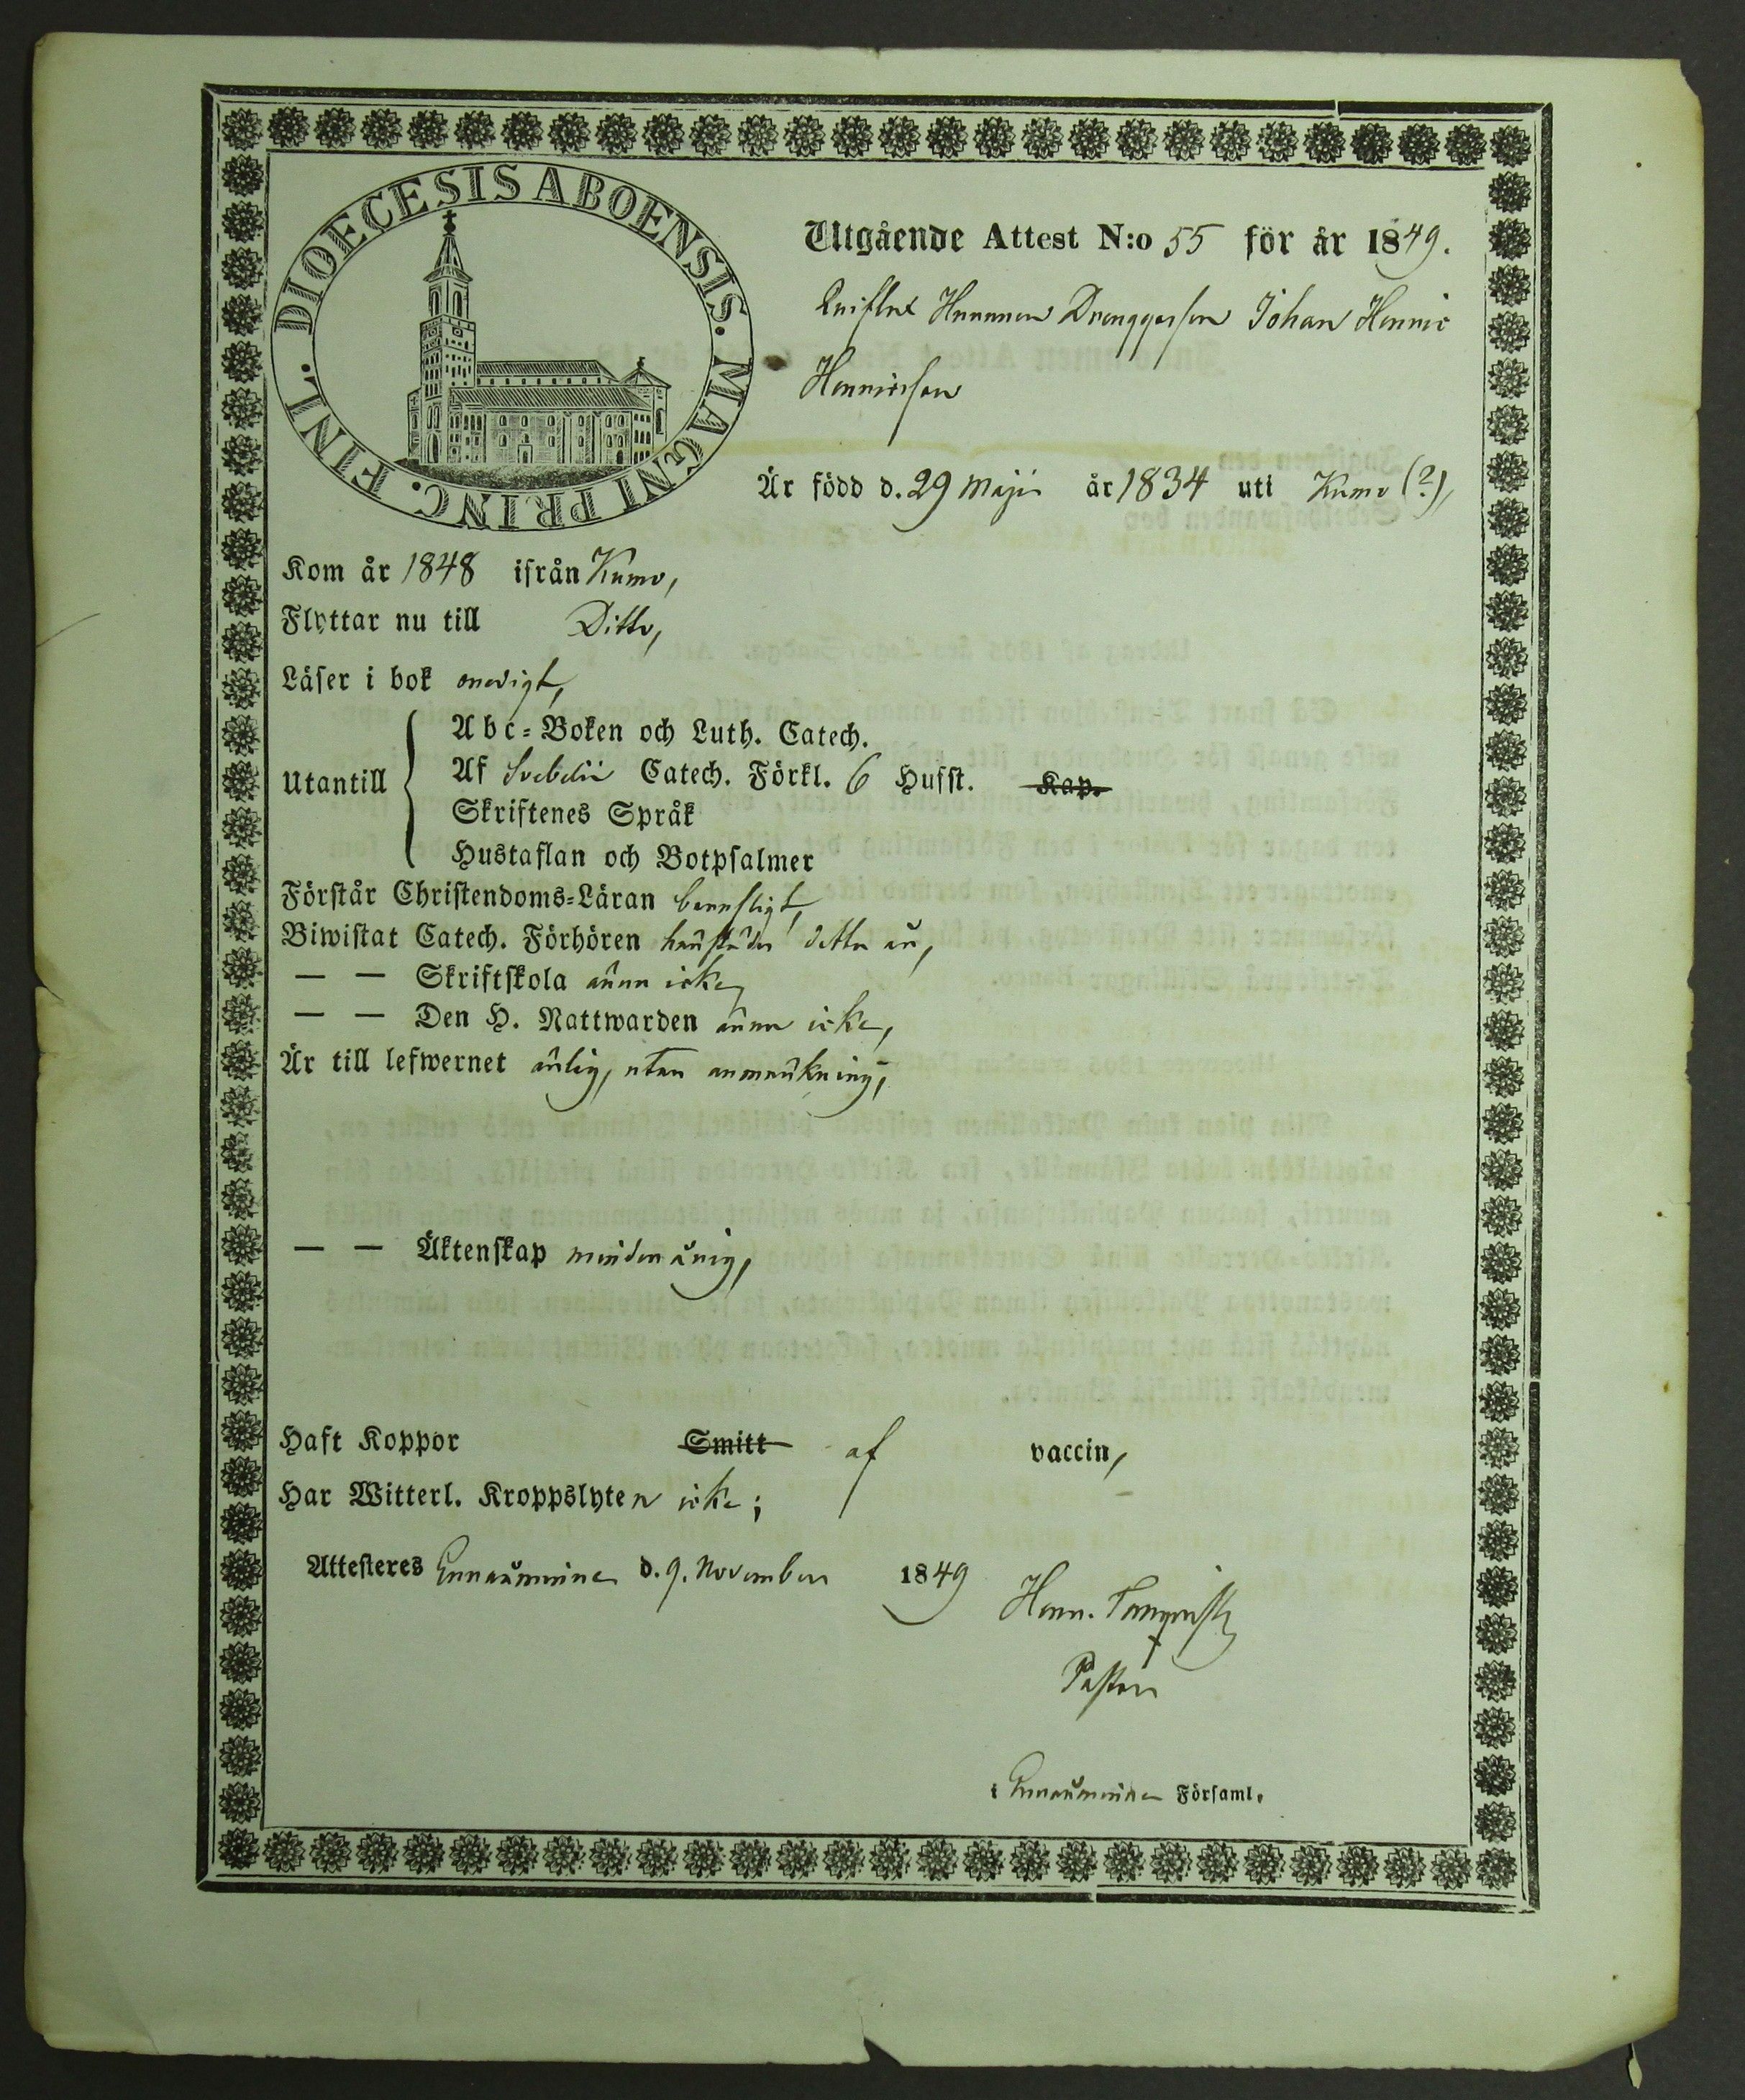 DIOECESIS ABOENSIS. MAGNI PRINC. FINL.
Utgående Attest N:o 55 för år 1849.
Drenggossen Johan Henric
Henricsson
Är född d. 29 Maji år 1834 uti Kumo (?),
Kom år 1848 ifrån Kumo,
Flyttar nu till Ditto,
Läser i bok onödigt,
Utantill
Abc-Boken och Luth. Catech.
Af Svebelii Catech. Förkl. 6 Hufst. Kap.
Skriftenes Språk
Hustaflan och Botpsalmer
Förstår Christendoms-Läran barnsligt,
Biwistat Catech. Förhören härstädes detta år,
— — Skriftskola ännu icke,
— — Den H. Nattwarden ännu icke,
Är till lefwernet ärlig, utan anmärkning,
— — Äktenskap minderårig,
Haft Koppor Smitt af vaccin,
Har Witterl. Kroppslyten icke;
Attesteres Euraåminne d. 9. November 1849
Henr.
Pastor
i Euraåminne Församl.